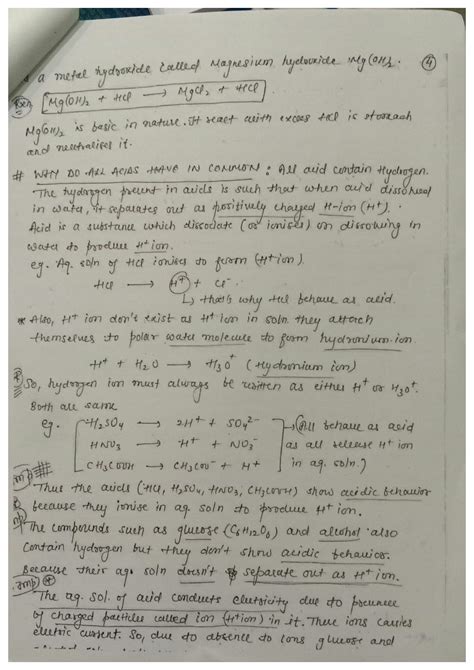 a metal hydroxide called Magnesium hydroxide Mg(OH)₂. ④
Rxn Mg(OH)₂ + HCl → MgCl₂ + HCl
Mg(OH)₂ is basic in nature. It react with excess HCl is stomach
and neutralises it.
# WHY DO ALL ACIDS HAVE IN COMMON : All acid contain Hydrogen.
The hydrogen present in acids is such that when acid dissolved
in water, it separates out as positively charged H-ion (H⁺).
Acid is a substance which dissociate (or ionises) on dissolving in
water to produce H⁺ ion.
eg. Aq. soln of HCl ionises to form (H⁺ ion).
HCl → H⁺ + Cl⁻
↳ that's why HCl behave as acid.
* Also, H⁺ ion don't exist as H⁺ ion in soln. they attach
themselves to polar water molecule to form hydronium ion
H⁺ + H₂O → H₃O⁺ (Hydronium ion)
* So, hydrogen ion must always be written as either H⁺ or H₃O⁺.
Both are same
eg. H₂SO₄ → 2H⁺ + SO₄²⁻ → (All behave as acid
HNO₃ → H⁺ + NO₃⁻ as all release H⁺ ion
CH₃COOH → CH₃COO⁻ + H⁺ in aq. soln.)
imp Thus the acids (HCl, H₂SO₄, HNO₃, CH₃COOH) show acidic behavior
because they ionise in aq soln to produce H⁺ ion.
imp The compounds such as glucose (C₆H₁₂O₆) and alcohol also
contain hydrogen but they don't show acidic behavior.
Because their aq. soln doesn't separate out as H⁺ ion.
imp *
The aq. Sol. of acid conducts electricity due to presence
of charged particles called ion (H⁺ion) in it. These ions carries
electric current. So, due to absence to ions glucose and